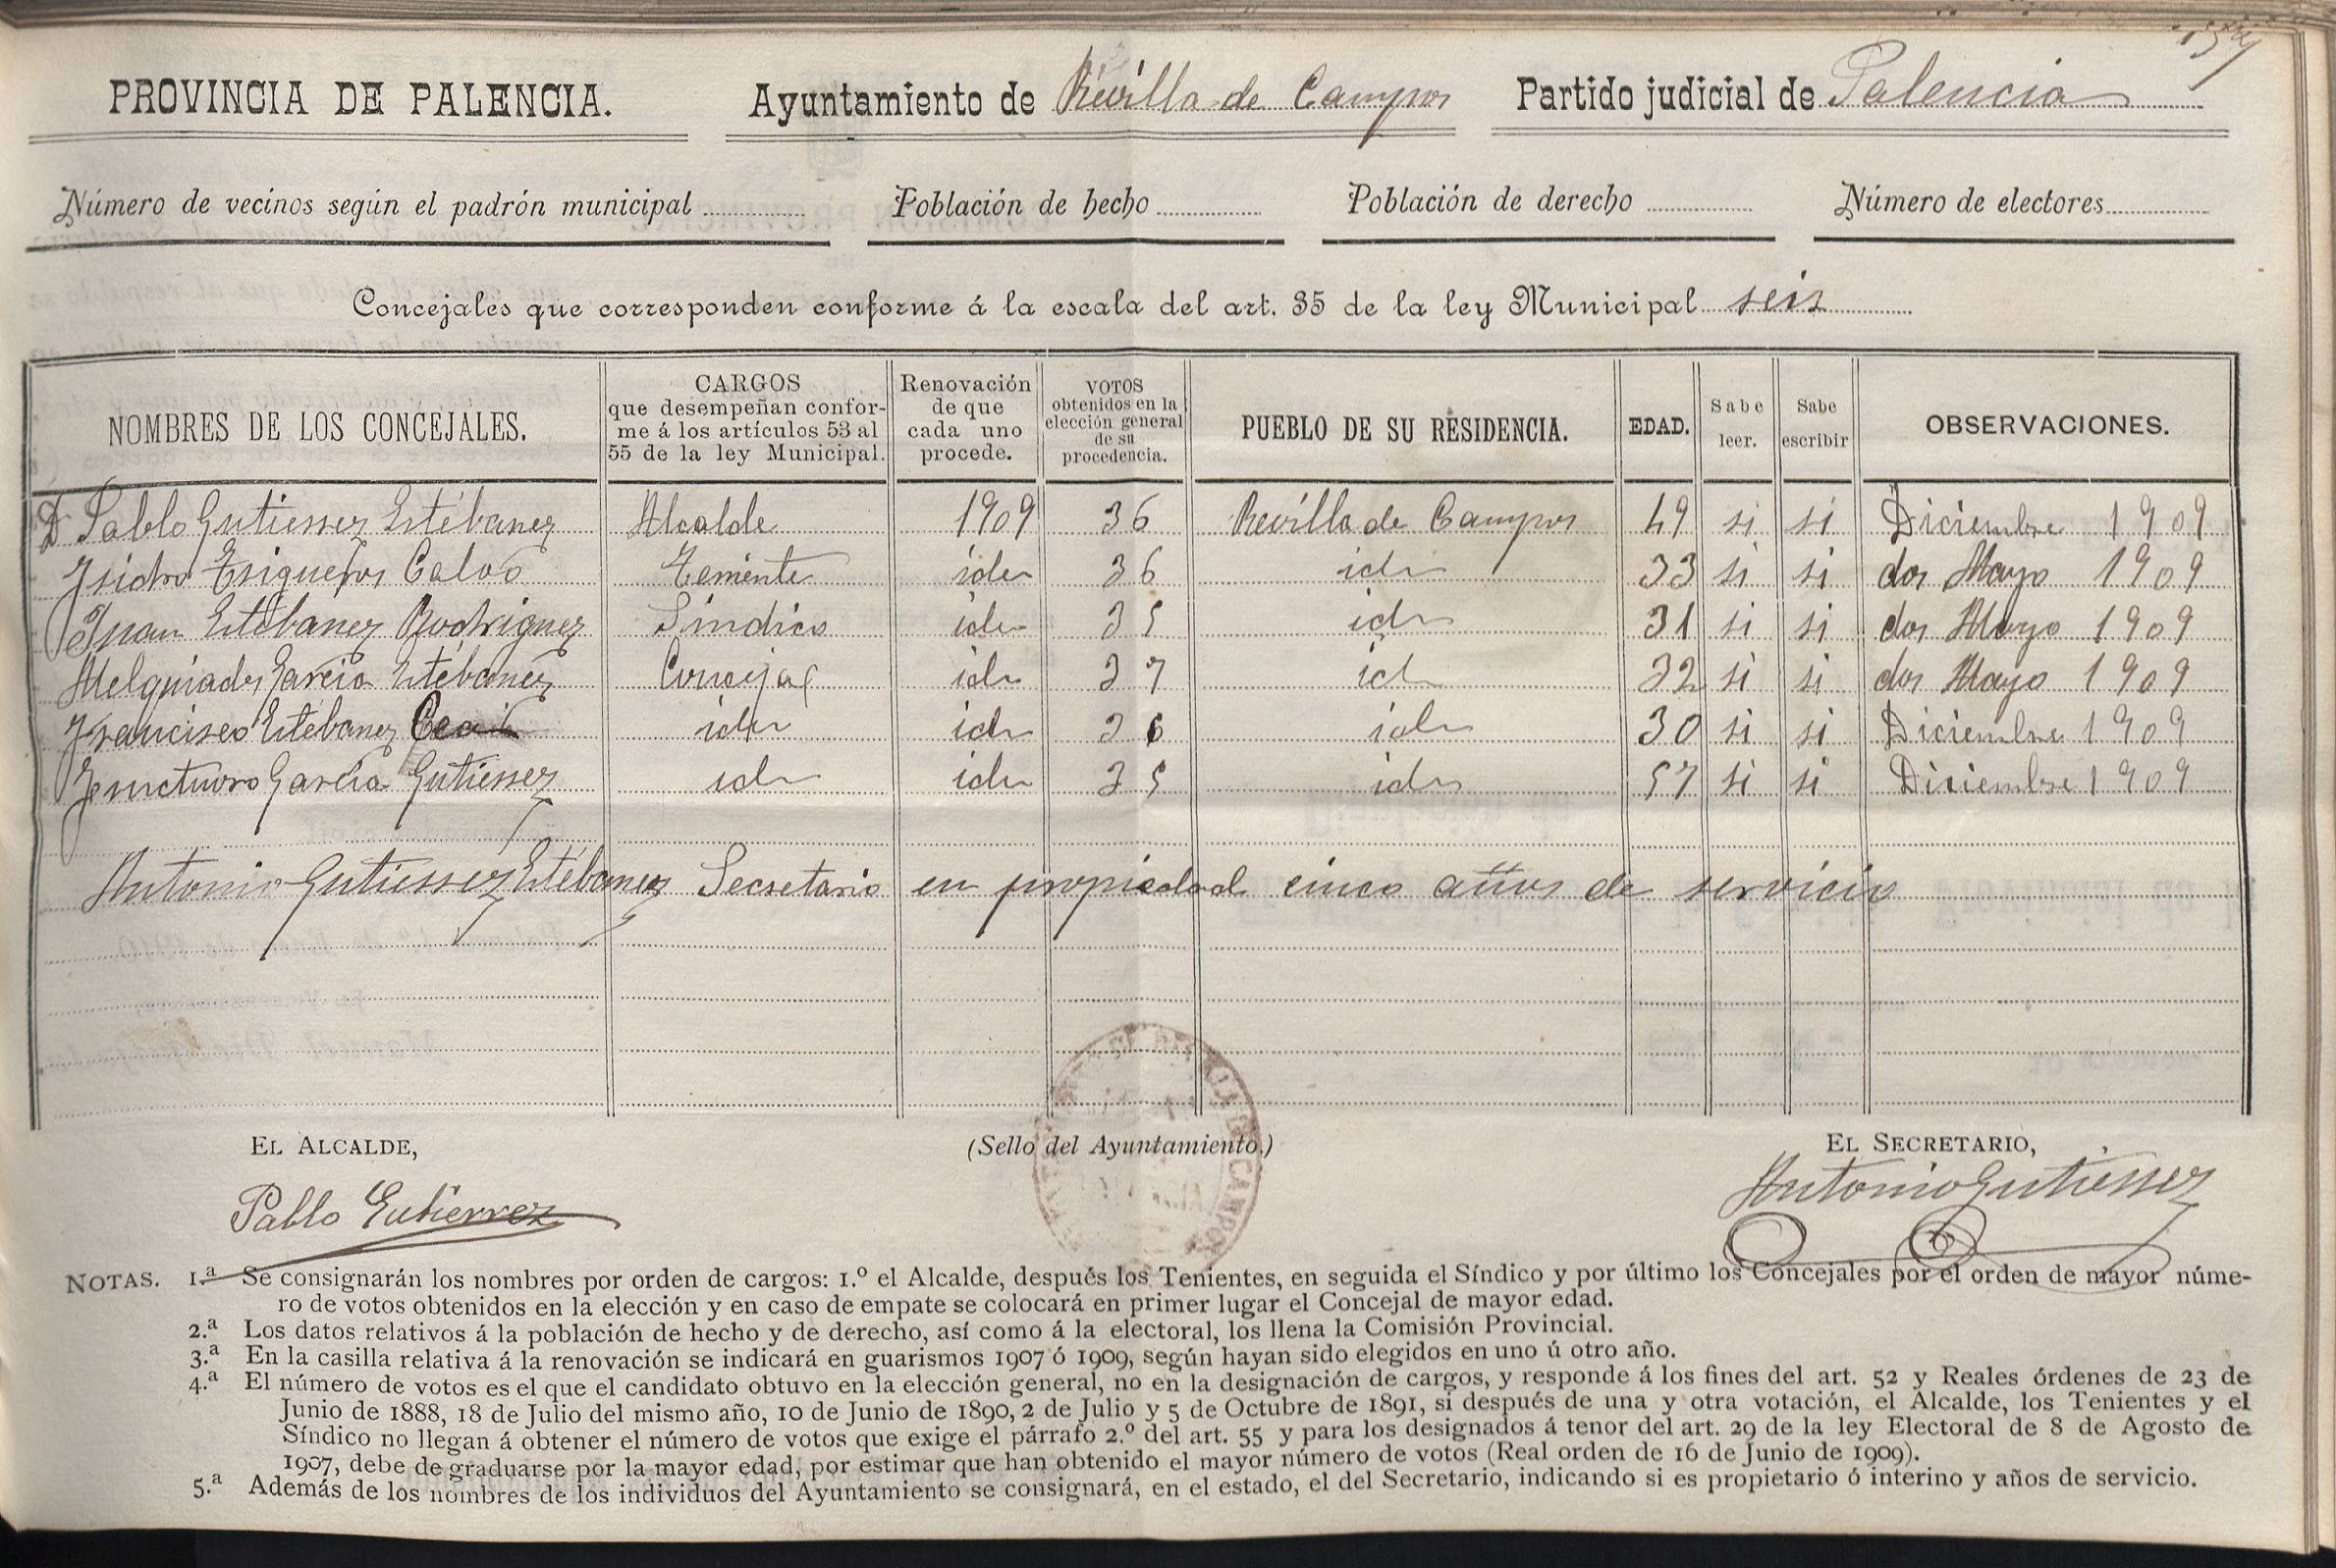 PROVINCIA DE PALENCIA. Ayuntamiento de Revilla de Campos Partido judicial de Palencia
Número de vecinos según el padrón municipal Población de hecho Población de derecho Número de electores
Concejales que corresponden conforme á la escala del art. 35 de la ley Municipal seis
NOMBRES DE LOS CONCEJALES. CARGOS que desempeñan conforme á los artículos 53 al 55 de la ley Municipal. Renovación de que cada uno procede. VOTOS obtenidos en la elección general de su procedencia. PUEBLO DE SU RESIDENCIA. EDAD. Sabe leer. Sabe escribir OBSERVACIONES.
D. Pablo Gutierrez Estébanez Alcalde 1909 36 Revilla de Campos 49 si si Diciembre 1909
Isidro Calvo Teniente idem 36 idem 33 si si dos Mayo 1909
Juan Estébanez Rodriguez Síndico idem 35 idem 31 si si dos Mayo 1909
Melquiades García Estébanez Concejal idem 37 id 32 si si dos Mayo 1909
Francisco Estébanez idem idem 36 idem 30 si si Diciembre 1909
Fructuoso García Gutierrez idem idem 35 idem 57 si si Diciembre 1909
Antonio Gutierrez Estébanez Secretario en propiedad cinco años de servicio
EL ALCALDE, (Sello del Ayuntamiento.) EL SECRETARIO,
Pablo Gutierrez Antonio Gutierrez
NOTAS. 1.ª Se consignarán los nombres por orden de cargos: 1.º el Alcalde, después los Tenientes, en seguida el Síndico y por último los Concejales por el orden de mayor núme-
ro de votos obtenidos en la elección y en caso de empate se colocará en primer lugar el Concejal de mayor edad.
2.ª Los datos relativos á la población de hecho y de derecho, así como á la electoral, los llena la Comisión Provincial.
3.ª En la casilla relativa á la renovación se indicará en guarismos 1907 ó 1909, según hayan sido elegidos en uno ú otro año.
4.ª El número de votos es el que el candidato obtuvo en la elección general, no en la designación de cargos, y responde á los fines del art. 52 y Reales órdenes de 23 de
Junio de 1888, 18 de Julio del mismo año, 10 de Junio de 1890, 2 de Julio y 5 de Octubre de 1891, si después de una y otra votación, el Alcalde, los Tenientes y el
Síndico no llegan á obtener el número de votos que exige el párrafo 2.º del art. 55 y para los designados á tenor del art. 29 de la ley Electoral de 8 de Agosto de
1907, debe de graduarse por la mayor edad, por estimar que han obtenido el mayor número de votos (Real orden de 16 de Junio de 1909).
5.ª Además de los nombres de los individuos del Ayuntamiento se consignará, en el estado, el del Secretario, indicando si es propietario ó interino y años de servicio.